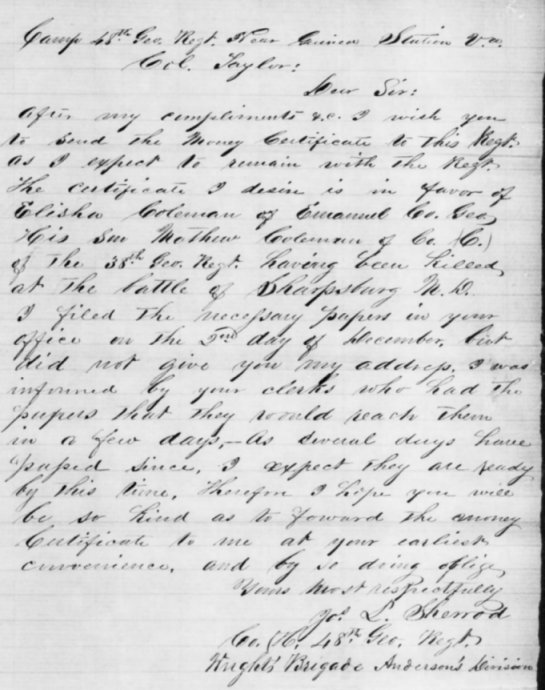 Camp 48th Geo. Regt. Near Guinea Station Va.
Col. Taylor:
Dear Sir:
After my compliments &c. I wish you
to send the Money Certificate to this Regt.
as I expect to remain with the Regt.
The certificate I desire is in favor of
Elisha Coleman of Emanuel Co. Geo.
His Son Mathew Coleman of Co. (C.)
of the 38th Geo. Regt. having been killed
at the battle of Sharpsburg M.D.
I filed the necessary papers in your
office on the 2nd day of December, but
did not give you my address. I was
informed by your clerks who had the
papers that they would reach them
in a few days,— As several days have
passed since, I expect they are ready
by this time, therefore I hope you will
be so kind as to forward the money
Certificate to me at your earliest
convenience, and by so doing oblige
Yours most respectfully
Jos. L. Sherrod
Co. (H. 48th Geo. Regt.
Wright's Brigade Anderson's Division